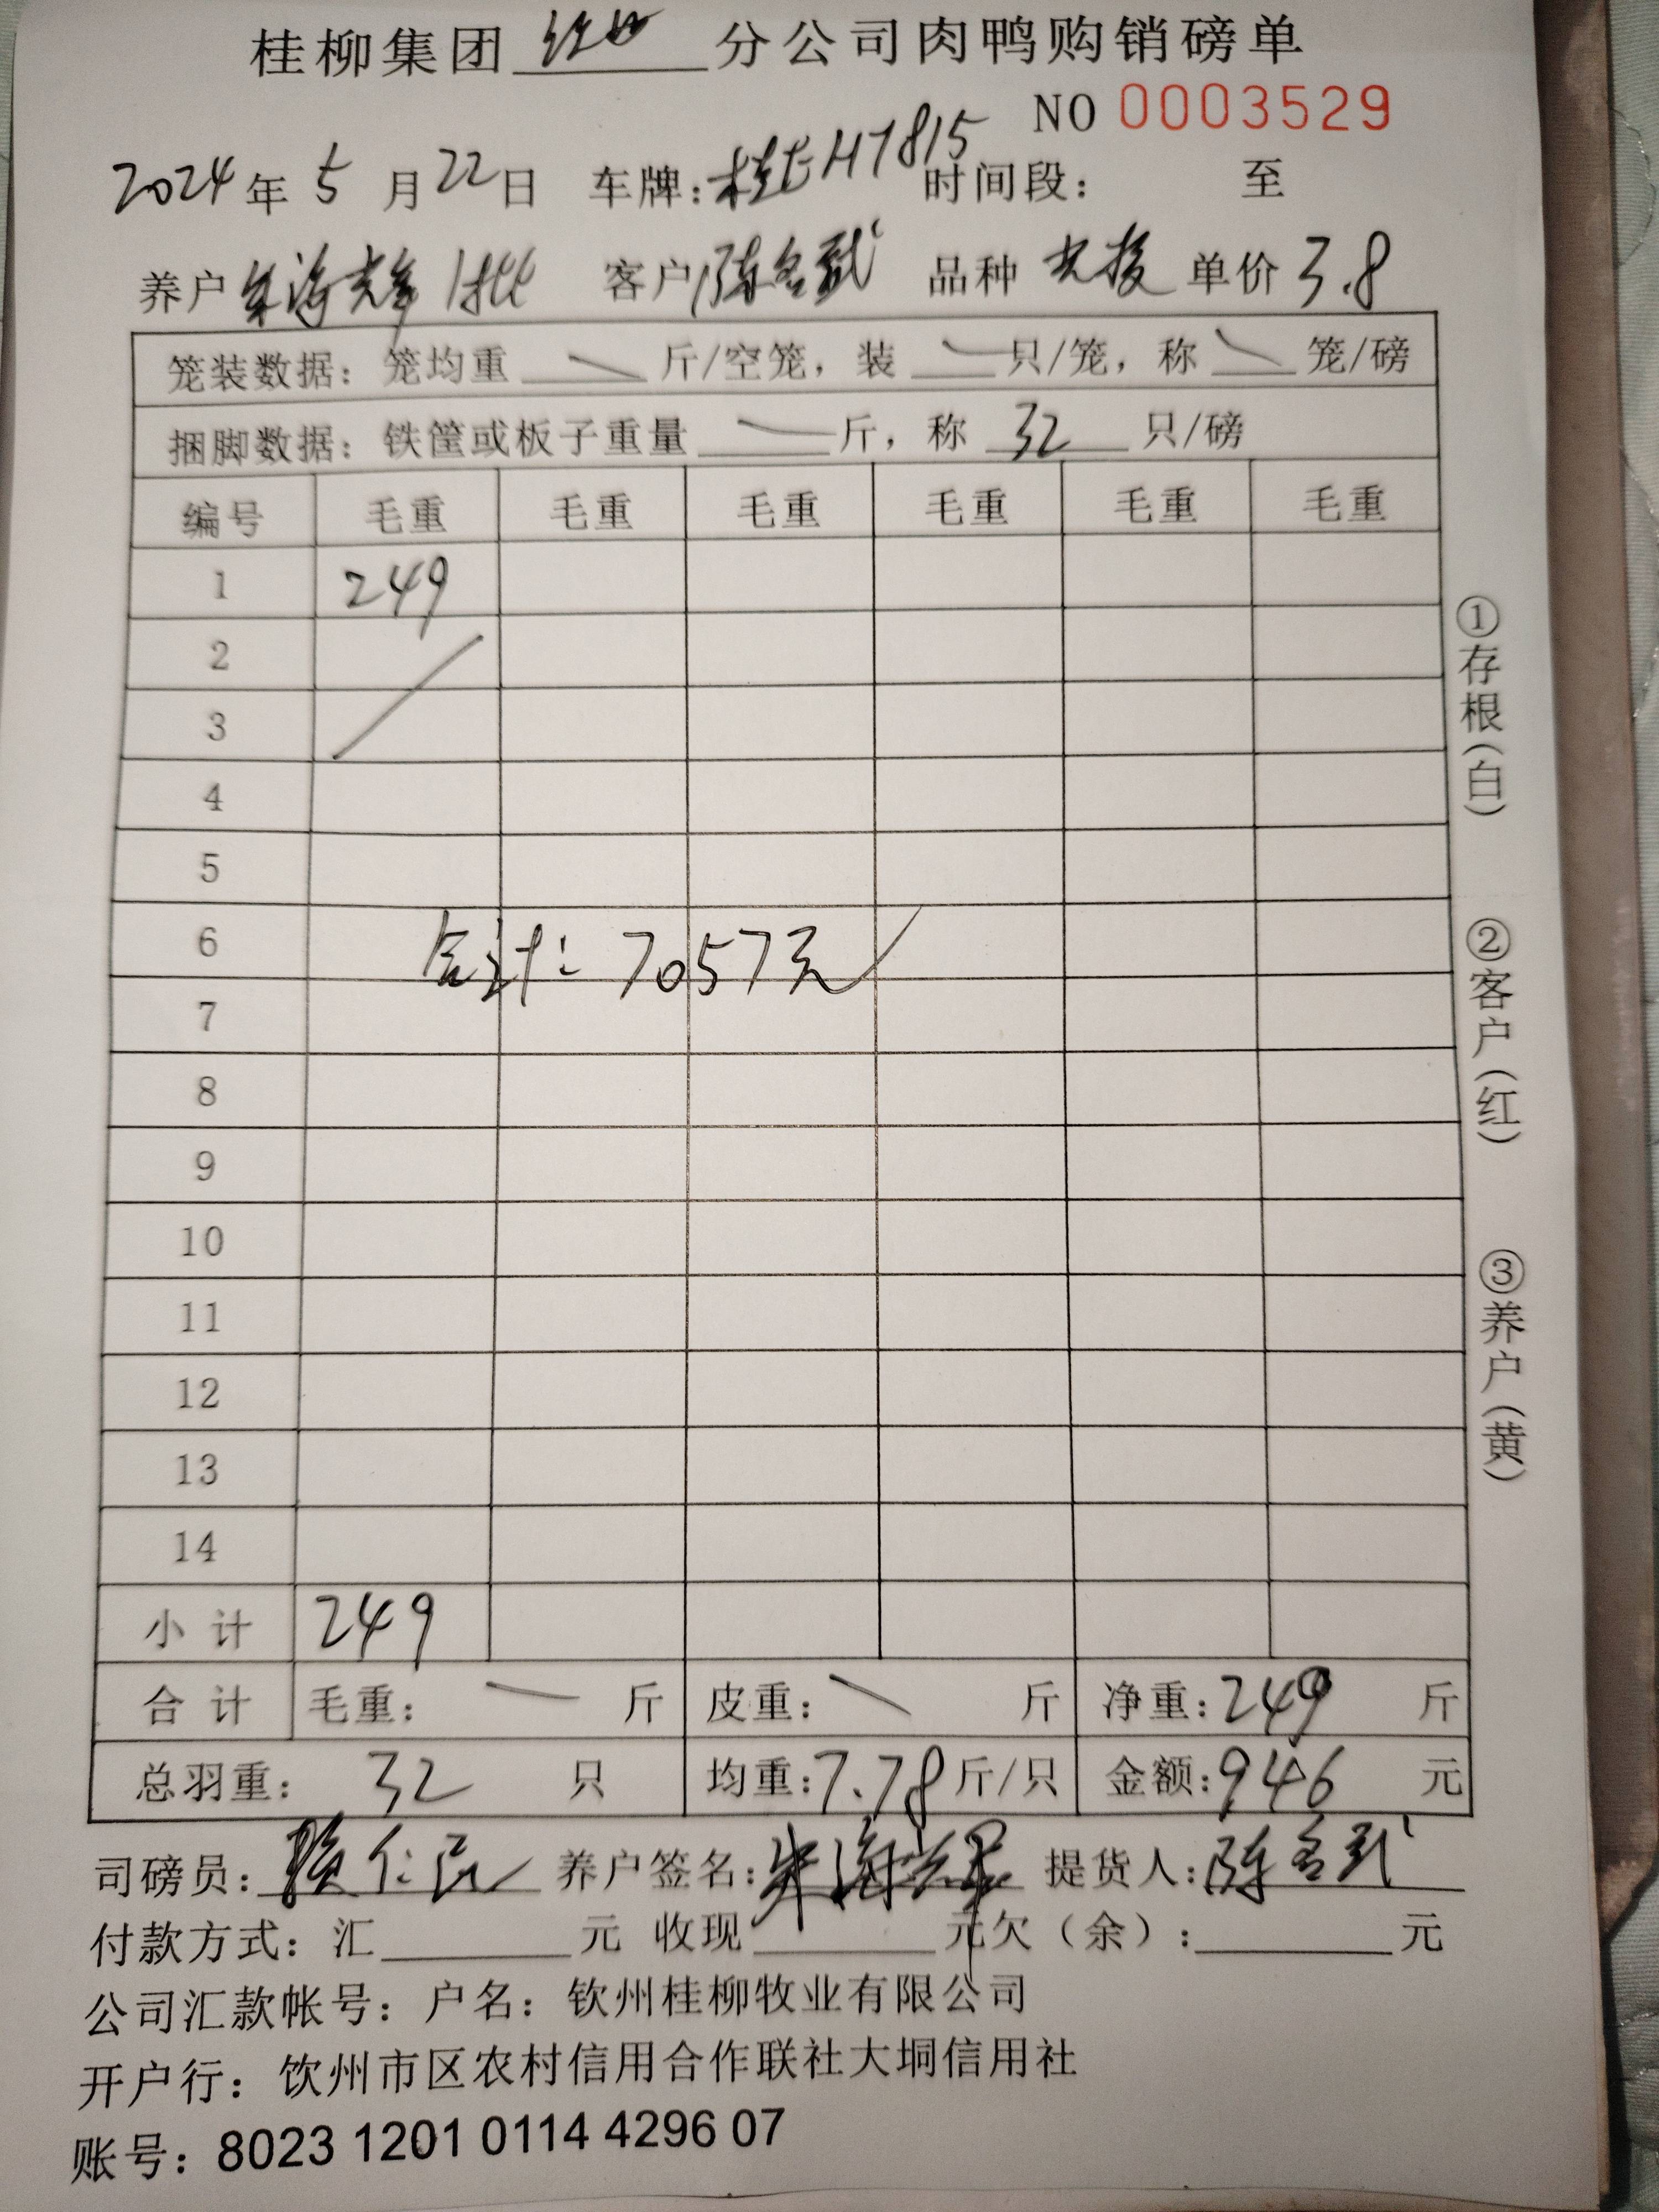 桂柳集团 分公司肉鸭购销磅单
NO 0003529
2024年5月22日 车牌:桂EH7815 时间段: 至
养户 朱海光辉 1批 客户 陈名武 品种 单价 3.8
笼装数据: 笼均重 斤/空笼, 装 只/笼, 称 笼/磅
捆脚数据: 铁筐或板子重量 斤, 称 32 只/磅
编号 毛重 毛重 毛重 毛重 毛重 毛重
1 249
2
3
4
5
6 合计: 7057元
7
8
9
10
11
12
13
14
小计 249
合计 毛重: 斤 皮重: 斤 净重:249 斤
总羽重: 32 只 均重:7.78斤/只 金额:946 元
司磅员: 仁 养户签名:朱海 提货人:陈名武
付款方式: 汇 元 收现 元欠(余): 元
公司汇款帐号: 户名: 钦州桂柳牧业有限公司
开户行: 饮州市区农村信用合作联社大垌信用社
账号: 8023 1201 0114 4296 07
①存根(白)
②客户(红)
③养户(黄)